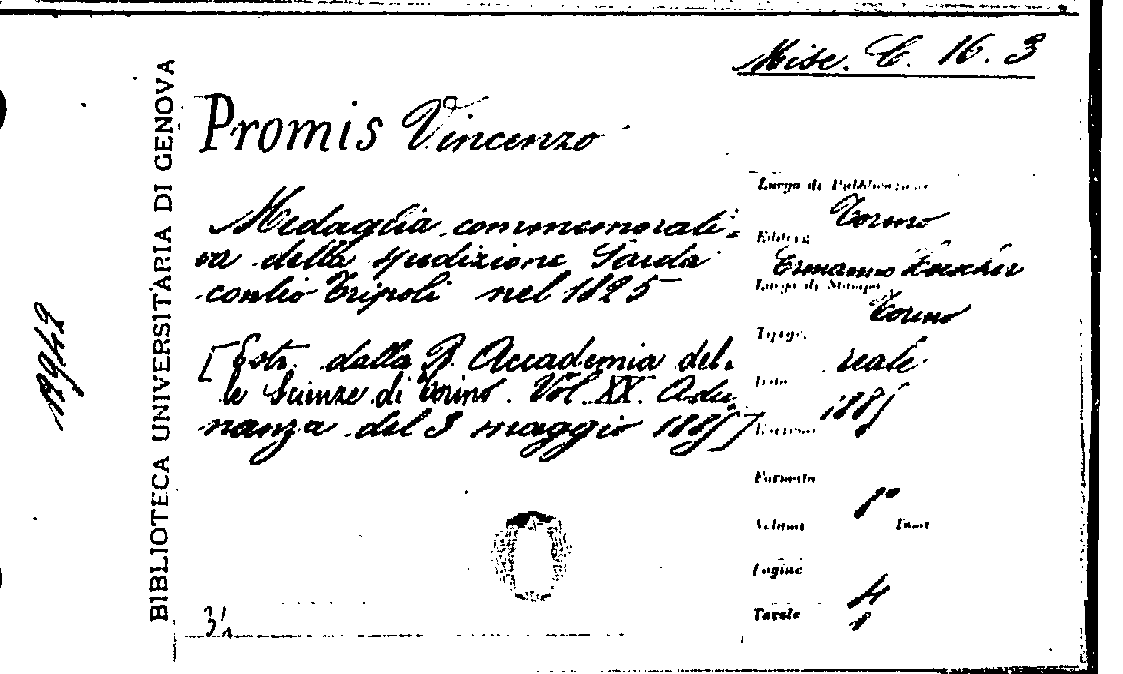 Misc. C. 16. 3
BIBLIOTECA UNIVERSITARIA DI GENOVA
Promis Vincenzo
Medaglia commemorati=
va della spedizione Sarda
contro Tripoli nel 1825
[Estr. dalla R. Accademia del=
le Scienze di Torino. Vol. XX. Adu
nanza del 3 maggio 1885]
Luogo di Pubblicazione
Torino
Editore
Ermanno Loescher
Luogo di Stampa
Torino
Tipogr.
reale
Data
1885
Formato
8°
Volume
Pagine
4
Tavole